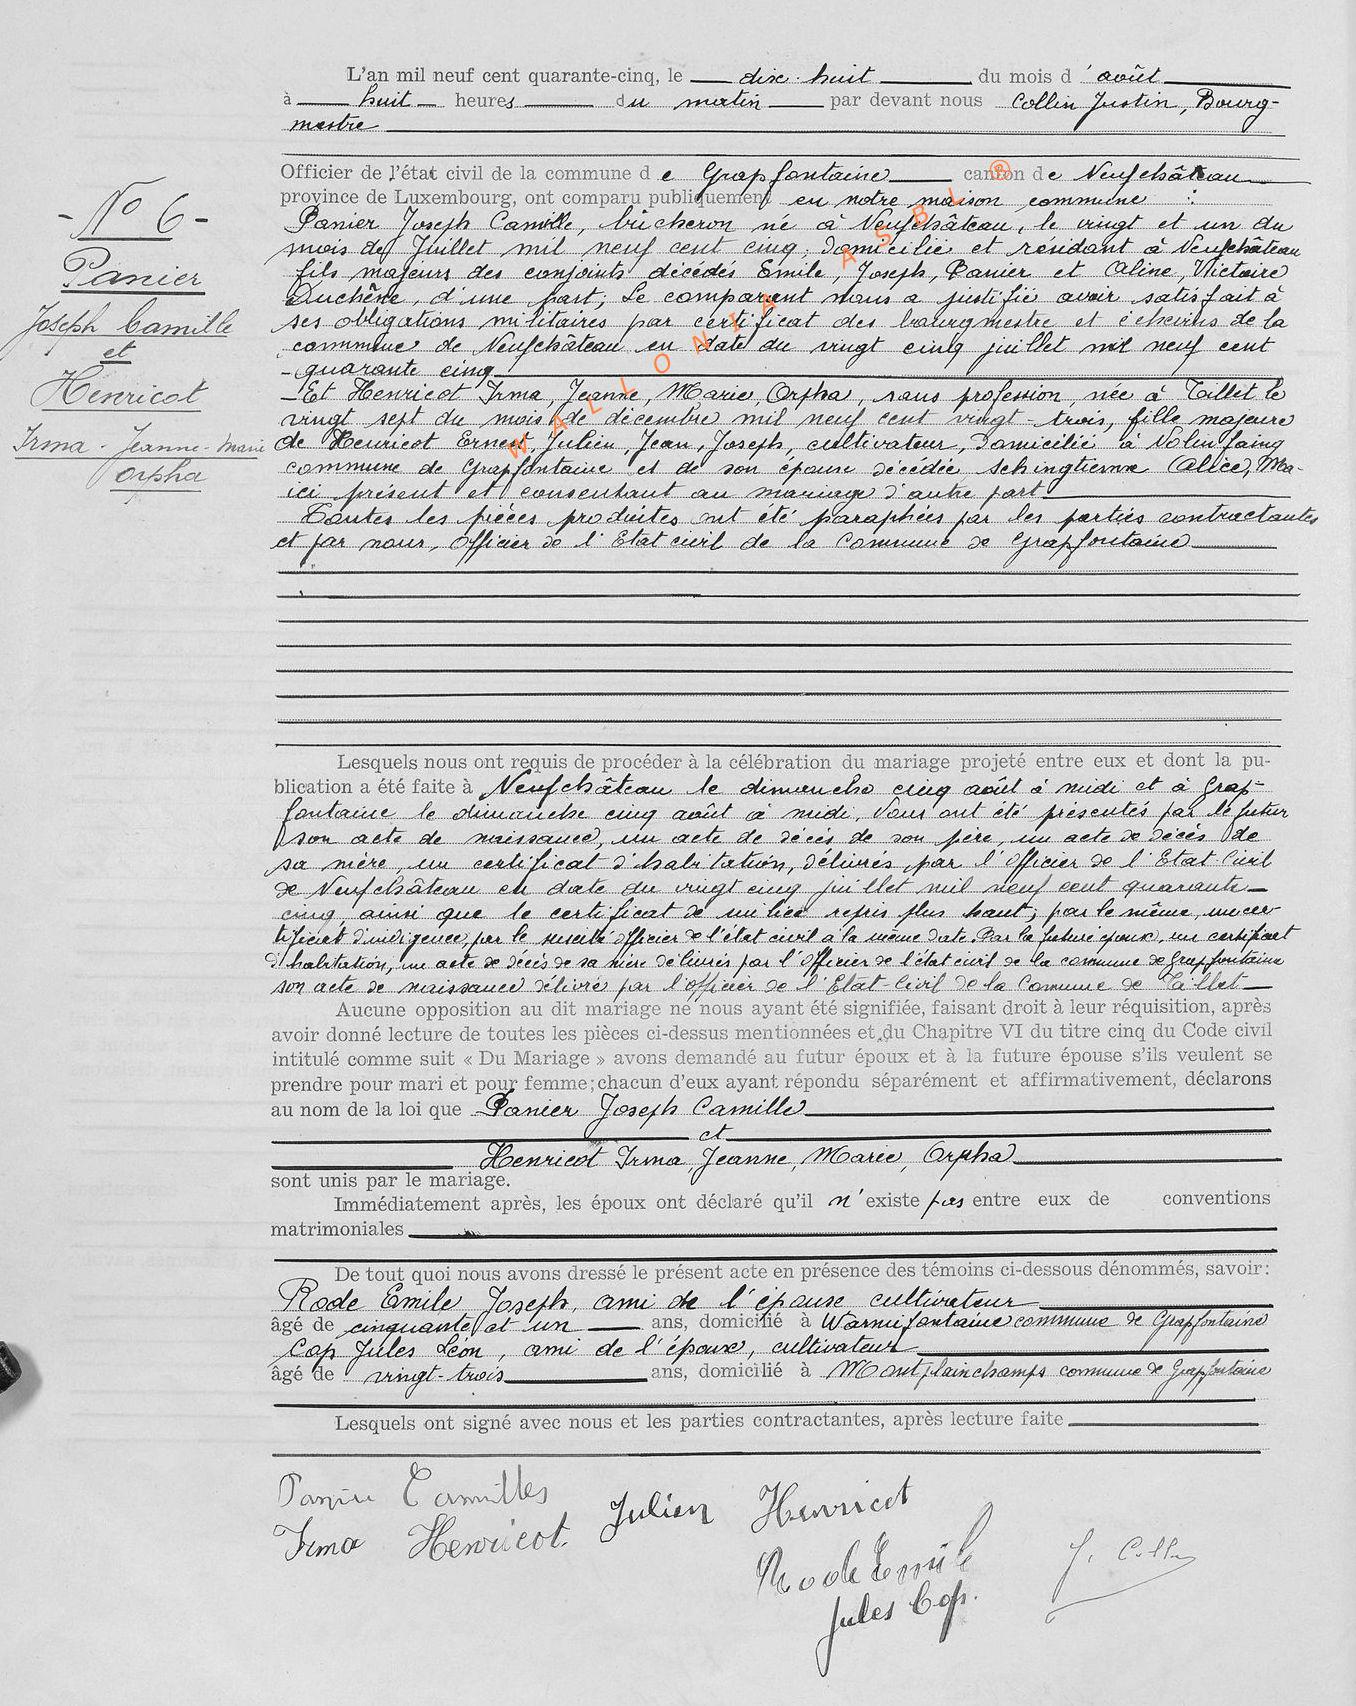 L'an mil neuf cent quarante-cinq, le dix-huit du mois d'août
à huit heures du matin par devant nous Collin Justin, Bourg-
mestre
Officier de l'état civil de la commune de Grapfontaine canton de Neufchâteau
province de Luxembourg, ont comparu publiquement en notre maison commune :
- No 6 -
Panier
Joseph Camille
et
Henricot
Irma - Jeanne - Marie
Orpha
Panier Joseph Camille, bûcheron né à Neufchâteau, le vingt et un du
mois de Juillet mil neuf cent cinq, domicilié et résidant à Neufchâteau
fils majeurs des conjoints décédés Emile, Joseph, Panier et Aline, Victoire
Duchêne, d'une part; Le comparant nous a justifié avoir satisfait à
ses obligations militaires par certificat des bourgmestre et échevins de la
commune de Neufchâteau en date du vingt cinq juillet mil neuf cent
- quarante cinq
- Et Henricot Irma, Jeanne, Marie, Orpha, sans profession, née à Tillet le
vingt sept du mois de décembre mil neuf cent vingt-trois, fille majeure
de Henricot Ernest, Julien, Jean, Joseph, cultivateur, domicilié à Nolinfaing
commune de Grapfontaine et de son épouse décédée Schingtienne (Alice), Ma-
ici présent et consentant au mariage d'autre part
Toutes les pièces produites ont été paraphées par les parties contractantes
et par nous, Officier de l'Etat civil de la Commune de Grapfontaine
WALLONIA ASBL ®
Lesquels nous ont requis de procéder à la célébration du mariage projeté entre eux et dont la pu-
blication a été faite à Neufchâteau le dimanche cinq août à midi et à Grap-
fontaine le dimanche cinq août à midi, Nous ont été présentés par le futur
son acte de naissance, un acte de décès de son père, un acte de décès de
sa mère, un certificat d'habitation, délivrés par l'Officier de l'Etat Civil
de Neufchâteau en date du vingt cinq juillet mil neuf cent quarante-
cinq, ainsi que le certificat de milice repris plus haut; par le même, un cer-
tificat d'indigence par le susdit officier de l'état civil à la même date. Par la future épouse, un certificat
d'habitation, un acte de décès de sa mère délivrés par l'Officier de l'état civil de la commune de Grapfontaine
son acte de naissance délivré par l'officier de l'Etat-Civil de la Commune de Tillet
Aucune opposition au dit mariage ne nous ayant été signifiée, faisant droit à leur réquisition, après
avoir donné lecture de toutes les pièces ci-dessus mentionnées et du Chapitre VI du titre cinq du Code civil
intitulé comme suit « Du Mariage » avons demandé au futur époux et à la future épouse s'ils veulent se
prendre pour mari et pour femme; chacun d'eux ayant répondu séparément et affirmativement, déclarons
au nom de la loi que Panier Joseph Camille
et
Henricot Irma, Jeanne, Marie, Orpha
sont unis par le mariage.
Immédiatement après, les époux ont déclaré qu'il n'existe pas entre eux de conventions
matrimoniales
De tout quoi nous avons dressé le présent acte en présence des témoins ci-dessous dénommés, savoir :
Rode Emile Joseph, ami de l'épouse cultivateur
âgé de cinquante et un ans, domicilié à Warmifontaine commune de Grapfontaine
Cop Jules Léon, ami de l'époux, cultivateur
âgé de vingt-trois ans, domicilié à Montplainchamps commune de Grapfontaine
Lesquels ont signé avec nous et les parties contractantes, après lecture faite
Panier Camille
Irma Henricot. Julien Henricot
Rode Emile J. Collin
Jules Cop.